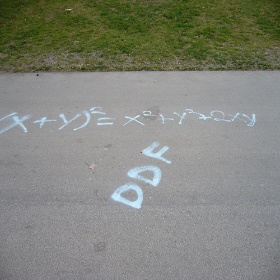 (x+y)²= x²+y²+2xy
DDF